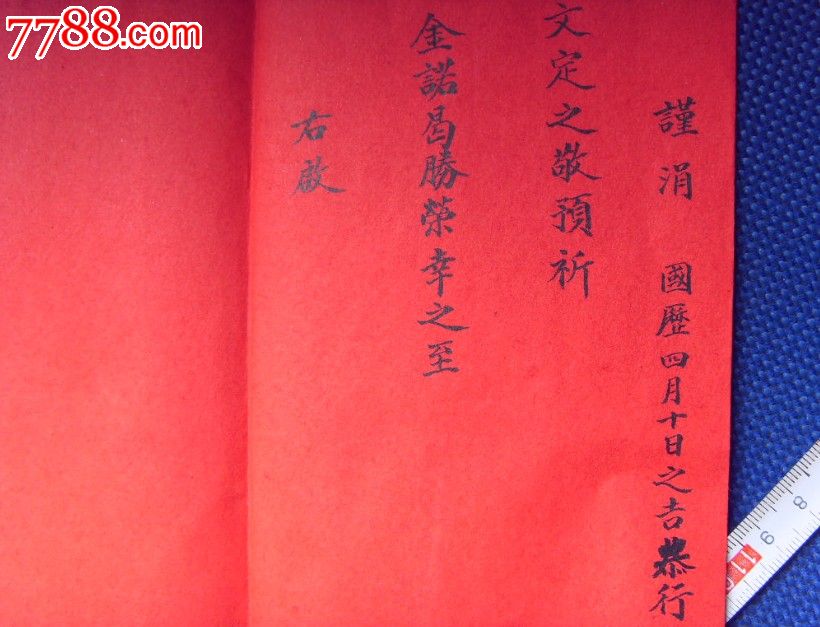 7788.com
謹涓 國歷四月十日之吉恭行
文定之敬預祈
金諾曷勝榮幸之至
右啟
8
9